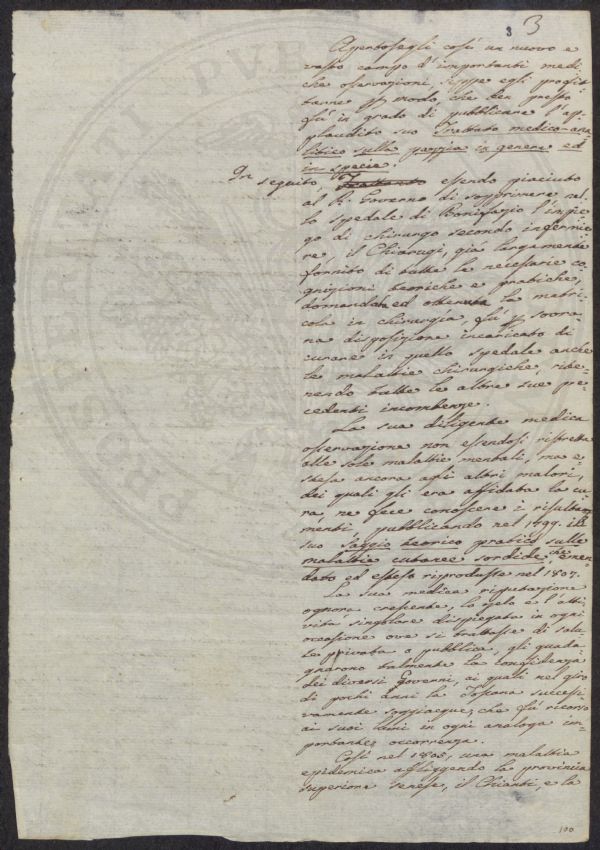 3 3
Apertosegli così un nuovo e
vasto campo d'importanti medi
che osservazioni, seppe egli profit
tarne p modo, che ben presto
fù in grado di pubblicare l'ap
plaudito suo Trattato medico-ana
litico sulla pazzia in genere ed
in specie.
In seguito, Trattanto essendo piaciuto
al R. Governo di sopprimere nel
lo spedale di Bonifazio l'impie
go di chirurgo secondo infermie
re, il Chiarugi, già largamente
fornito di tutte le necessarie co
gnizioni teoriche e pratiche,
domandata ed ottenuta la matri
cola in chirurgia fù p sovra
na disposizione incaricato di
curare in quello spedale anche
le malattie chirurgiche, rite
nendo tutte le altre sue pre
cedenti incombenze.
La sua diligente medica
osservazione non essendosi ristretta
alle sole malattie mentali, ma e
stesa ancora agli altri malori,
dei quali gli era affidata la cu
ra, ne fece conoscere i resulta
menti, pubblicando nel 1799. il
suo Saggio teorico pratico sulle
malattie cutanee sordide, che emen
dato ed esteso riprodusse nel 1807.
La sua medica riputazione
ognora crescente, lo zelo e l'atti
vità singolare dispiegata in ogni
occasione ove si trattasse di salu
te privata o pubblica, gli guada
gnarono talmente la confidenza
dei diversi Governi, ai quali nel giro
di pochi anni la Toscana successi
vamente soggiacque, che fù ricorso
ai suoi lumi in ogni analoga im
portante occorrenza.
Così nel 1805, una malattia
epidemica affliggendo la provincia
superiore senese, il Chianti, e la
100